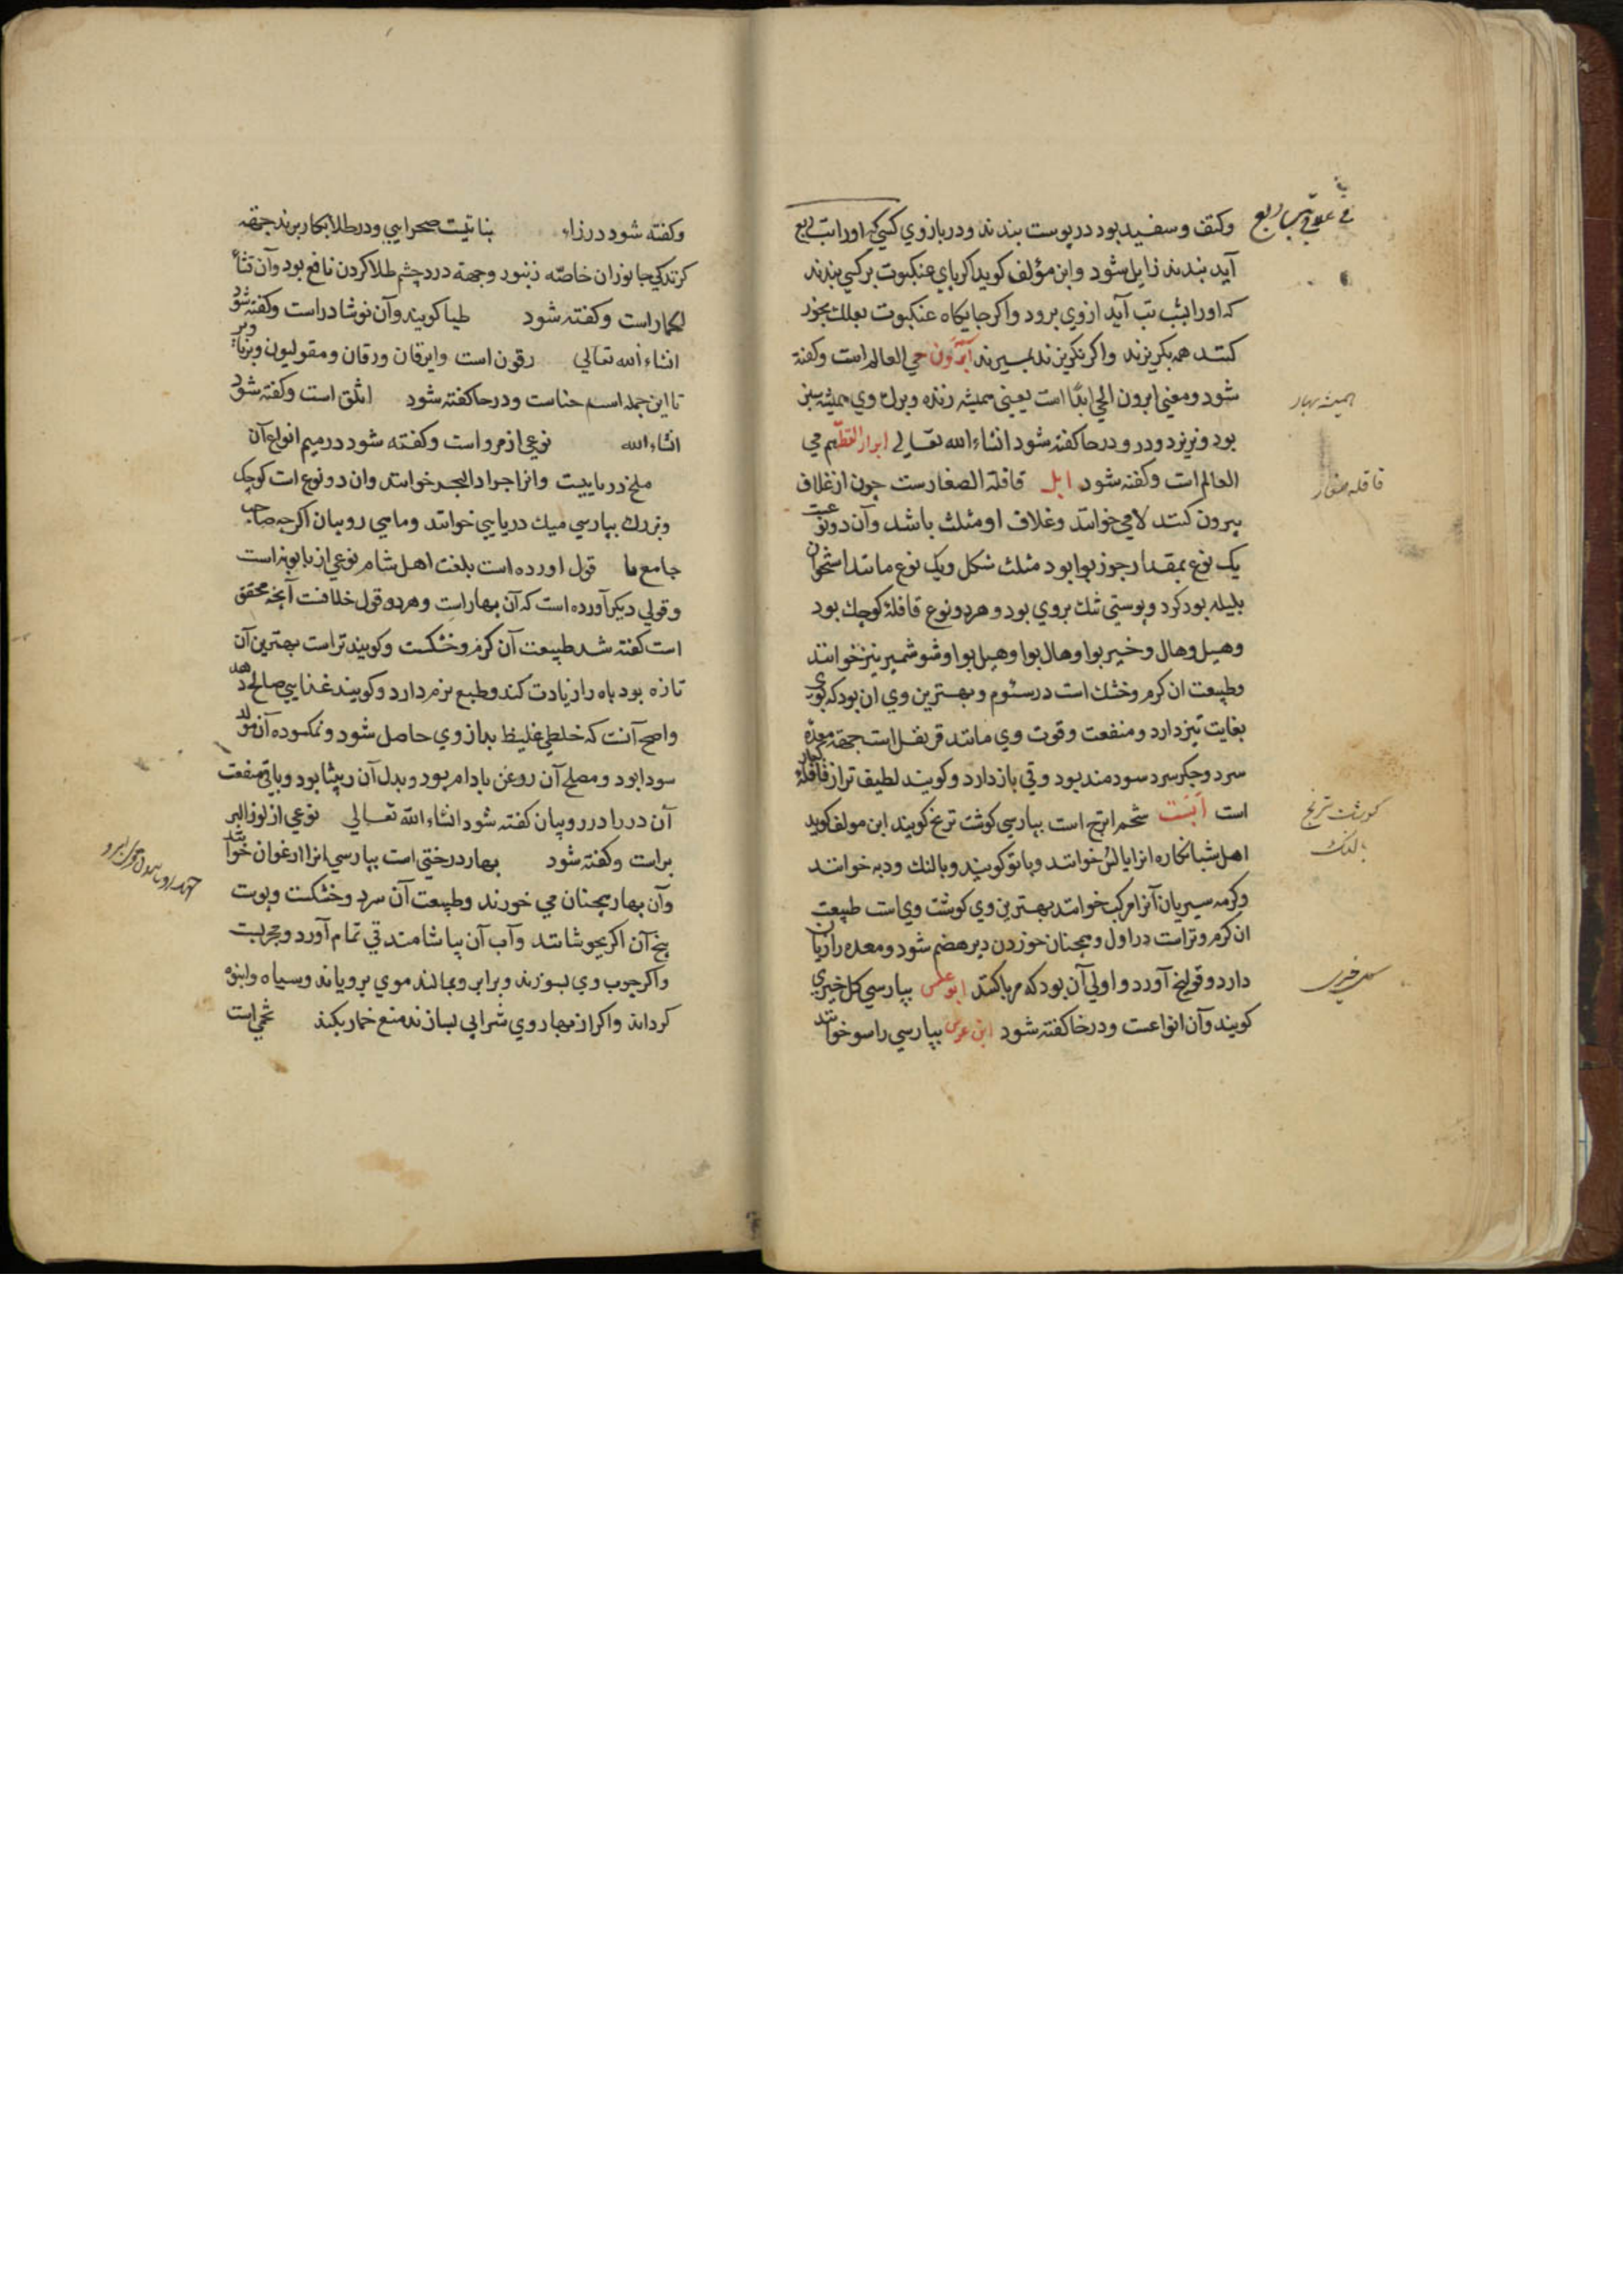 وکثف وسفید بود در پوست بندند و در بازوی کسی که او را تب ربع
آید بندند زایل شود و ابن مؤلف کوید اکر پای عنکبوت بر کسی بندند
که او را بشب تب آید از وی برود و اکر جایکاه عنکبوت بعلك بخور
کنند همه بکریزند و اکر نکریزند بمیرند ابرون حی العالم است وکفته
شود ومعنی ابرون الحی ابدًا است یعنی همیشه زنده وبرك وی همیشه سبز
بود ونریزد و در و در حا کفته شود انشاء الله تعالی ابرار القطیم حی
العالم است وکفته شود ابل قاقلة الصغارست چون از غلاف
بیرون کنند لامی خوانند وغلاف او مثلث باشد وآن دو نوعست
یک نوع بمقدار جوز بوا بود مثلث شکل ویک نوع مانند استخوان
بلیله بود کرد وپوستی تنك بروی بود وهر دو نوع قاقلهٔ کوچك بود
وهیل وهال وخیر بوا وهال بوا وهیل بوا وشوشمیر نیز خوانند
وطبیعت ان کرم وخشك است در سئوم وبهترین وی ان بود که بوی
بغایت تیز دارد ومنفعت وقوت وی مانند قرنفل است جهة معده
سرد وجکر سرد سودمند بود وقی باز دارد وکویند لطیف تر از قاقلهٔ کبار
است ابست شحم اترج است بپارسی کوشت ترنج کویند ابن مولف کوید
اهل شبانکاره انرا بالس خوانند وباتو کویند وبالنك ودبه خوانند
وکرمه سیریان آنرا مرکب خوانند بهترین وی کوشت وی است طبیعت
ان کرم وتر است در اول وهمچنان خوردن دیر هضم شود ومعده را زیان
دارد وقولنج آورد واولی آن بود که مربا کنند ابو علس بپارسی کل خیری
کویند وآن انواعست ودر خا کفته شود ابن عرس بپارسی راسو خوانند
همیشه بهار
قاقله صغار
کوشت ترنج
بالنك
کل خیری
وکفته شود در زاء بناتیت صحرایی ودر طلا بکار برند جهة
کزندکی جانوران خاصّه زنبور وجهة درد چشم طلا کردن نافع بود وآن قثاء
لحمار است وکفته شود طیا کویند وآن نوشادر است وکفته شود
انشاء الله تعالی رقون است وایرقان ورقان ومقولیون وبرنا
تا این جمله اسم حناست ودر حا کفته شود اثلق است وکفته شود
انشاء الله نوعی از مرو است وکفته شود در میم انواع آن
ملخ دریاییت وانرا جراد البحر خوانند وان دو نوع است کوچك
وبزرك بپارسی میك دریایی خوانند وماهی روبیان اکرچه صاحب
جامع ما قول اورده است بلغت اهل شام نوعی از بابونه است
وقولی دیکر آورده است که آن بهار است وهر دو قول خلافت آنچه محقق
است کفته شد طبیعت آن کرم وخشکست وکویند تر است بهترین آن
تازه بود باه را زیادت کند وطبع نرم دارد وکویند غذایی صالح دهد
واصح آنت که خلطی غلیظ بد از وی حاصل شود ونمکسوده آن مولد
سودا بود ومصلح آن روغن بادام بود وبدل آن ربیثا بود وباقی منفعت
آن در را در روبیان کفته شود انشاء الله تعالی نوعی از لوز البر
بر است وکفته شود بهار درختی است بپارسی انرا ارغوان خوانند
وآن بهار همچنان می خورند وطبیعت آن سرد وخشکست وپوست
بیخ آن اکر بجوشانند وآب آن بیاشامند قی تمام آورد ومجربست
واکر چوب وی بسوزند وبر ابرو بمالند موی برویاند وسیاه وانبوه
کرداند واکر از بهار وی شرابی بسازند منع خمار بکند تخمی است